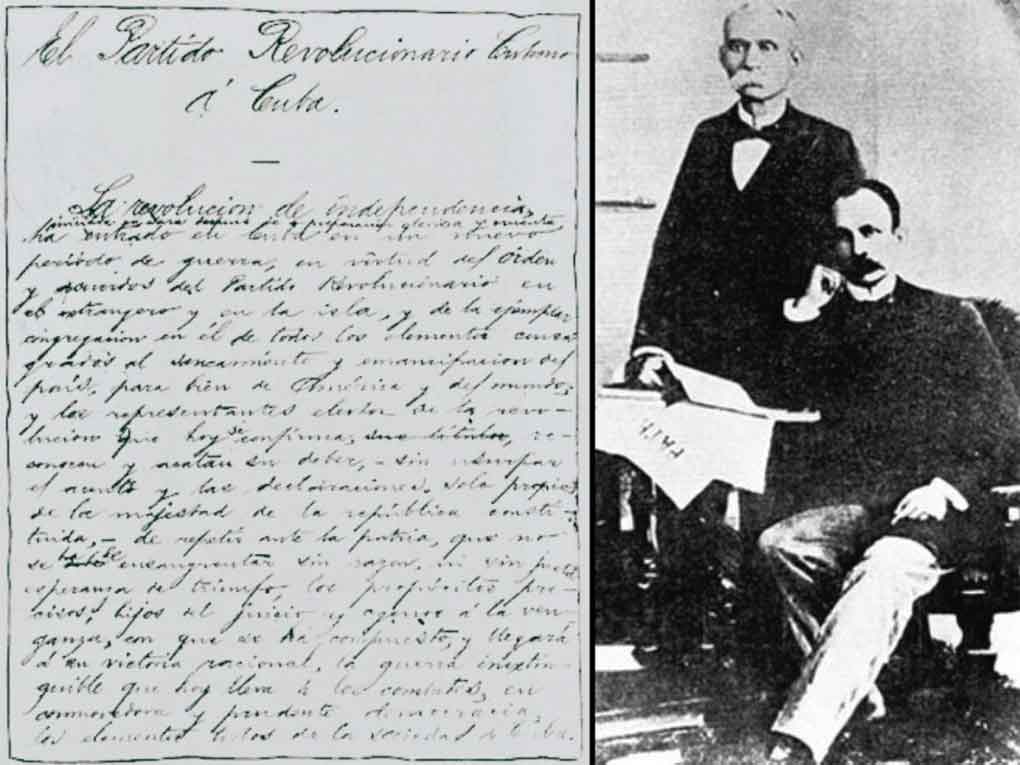 El Partido Revolucionario Cubano
á Cuba.
La revolucion de independencia,
iniciada en Yara despues de preparacion gloriosa y cruenta,
ha entrado en Cuba en un nuevo
período de guerra, en virtud del órden
y acuerdos del Partido Revolucionario en
el extrangero y en la isla, y de la ejemplar
congregacion en él de todos los elementos consa
grados al saneamiento y emancipacion del
país, para bien de América y del mundo;
y los representantes electos de la revo-
lucion que hoy se confirma, sus títulos, re-
conocen y acatan su deber, - sin usurpar
el acento y las declaraciones, solo propias
de la majestad de la república consti-
tuida, - de repetir ante la patria, que no
se ha de ensangrentar sin razon, ni sin justa
esperanza de triunfo, los propósitos pre-
cisos, hijos del juicio y agenos á la ven-
ganza, con que se há compuesto, y llegará
á su victoria racional, la guerra inextin-
guible que hoy lleva á los combates, en
conmovedora y prudente democracia,
los elementos todos de la sociedad de Cuba.